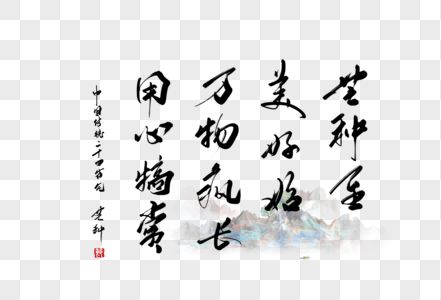 芒种至
美好始
万物疯长
用心犒赏
中国传统二十四节气 芒种